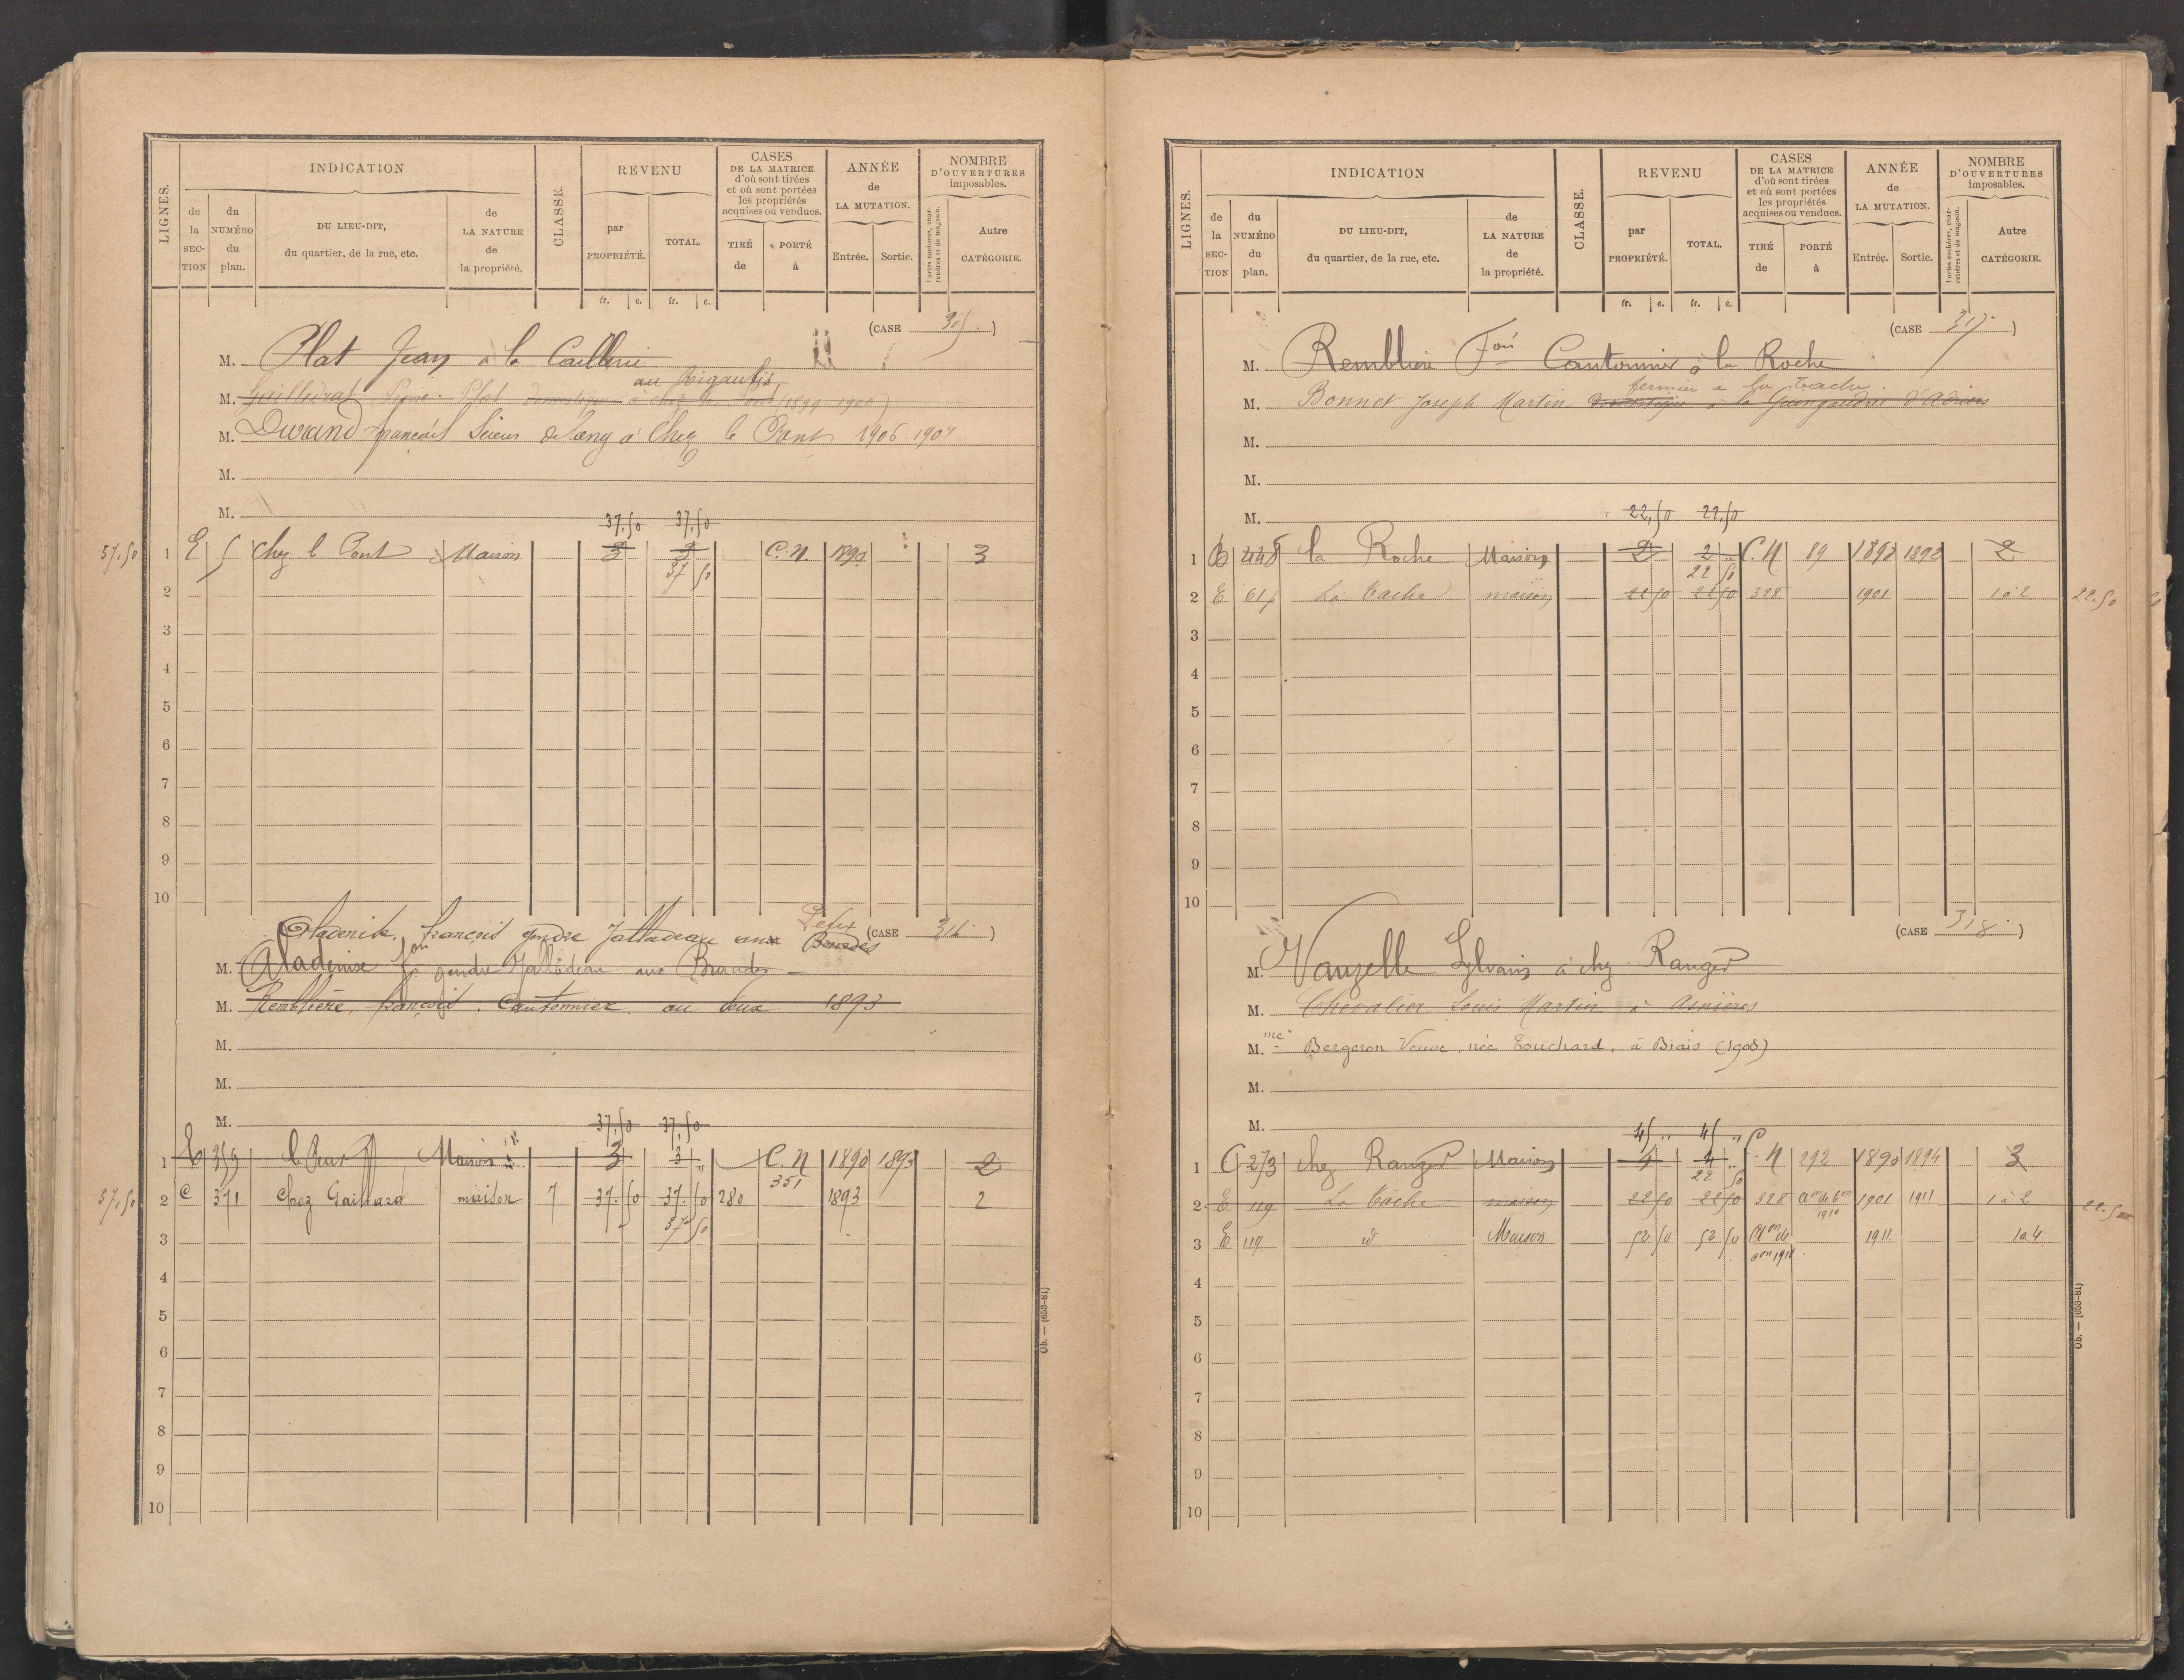 LIGNES.
INDICATION
de la SECTION
du NUMÉRO du plan.
DU LIEU-DIT, du quartier, de la rue, etc.
de LA NATURE de la propriété.
CLASSE.
REVENU
par PROPRIÉTÉ.
TOTAL.
CASES DE LA MATRICE d'où sont tirées et où sont portées les propriétés acquises ou vendues.
TIRÉ de
PORTÉ à
ANNÉE de LA MUTATION.
Entrée.
Sortie.
NOMBRE D'OUVERTURES imposables.
Portes cochères, charretières et de magasin.
Autre CATÉGORIE.
fr. c. fr. c.
(CASE 315.)
M. Plat Jean à la Caillerie
au Rigaudis
M. Plat domestique à chez le Pont (1899 1900)
M. Durand françois Scieur de long à Chez le Pont 1906 1907
M.
M.
37,50 37,50
37.50 1 E 5 Chez le Pont Maison 3 3 C.N. 1890 3
37 50
2
3
4
5
6
7
8
9
10
françois gendre Jalladeau aux Brandes
(CASE 316.)
M. Aladenise fois gendre Jalladeau aux Brandes
M. Remblière, françois. Cantonnier au 1893
M.
M.
M.
37,50 37,50
1 359 Maison 3 3 " C.N 1890 1893 2
351
37.50 2 C 371 Chez Gaillard maison 7 37.50 37.50 280 1893 2
37 50
3
4
5
6
7
8
9
10
Ob. — (653-81)
LIGNES.
INDICATION
de la SECTION
du NUMÉRO du plan.
DU LIEU-DIT, du quartier, de la rue, etc.
de LA NATURE de la propriété.
CLASSE.
REVENU
par PROPRIÉTÉ.
TOTAL.
CASES DE LA MATRICE d'où sont tirées et où sont portées les propriétés acquises ou vendues.
TIRÉ de
PORTÉ à
ANNÉE de LA MUTATION.
Entrée.
Sortie.
NOMBRE D'OUVERTURES imposables.
Portes cochères, charretières et de magasin.
Autre CATÉGORIE.
fr. c. fr. c.
(CASE 317.)
M. Remblière Fois Cantonnier à la Roche
fermier à la Vache
M. Bonnet Joseph Martin domestique à la d'Adriers
M.
M.
M.
22,50 22,50
1 B 448 la Roche Maison 2 2 " C.N 89 1890 1892 2
22 50
2 E 61p La Vache maison 22 50 22 50 328 1901 1 à 2 22.50
3
4
5
6
7
8
9
10
(CASE 318.)
M. Vauzelle Sylvain à chez Ranger
M. Chevalier Louis Martin à Asnières
M.me Bergeron Veuve, née Touchard, à Biais (1908)
M.
M.
45 " 45 "
1 C 273 chez Ranger Maison 4 4 " C.N 292 1890 1894 3
22 50
2 E 119 La Vache maison 22 50 22 50 328 1910 1901 1911 1 à 2 22.50
3 E 119 id Maison 52 50 52 50 1911 1 à 4
4
5
6
7
8
9
10
Ob. — (653-81)